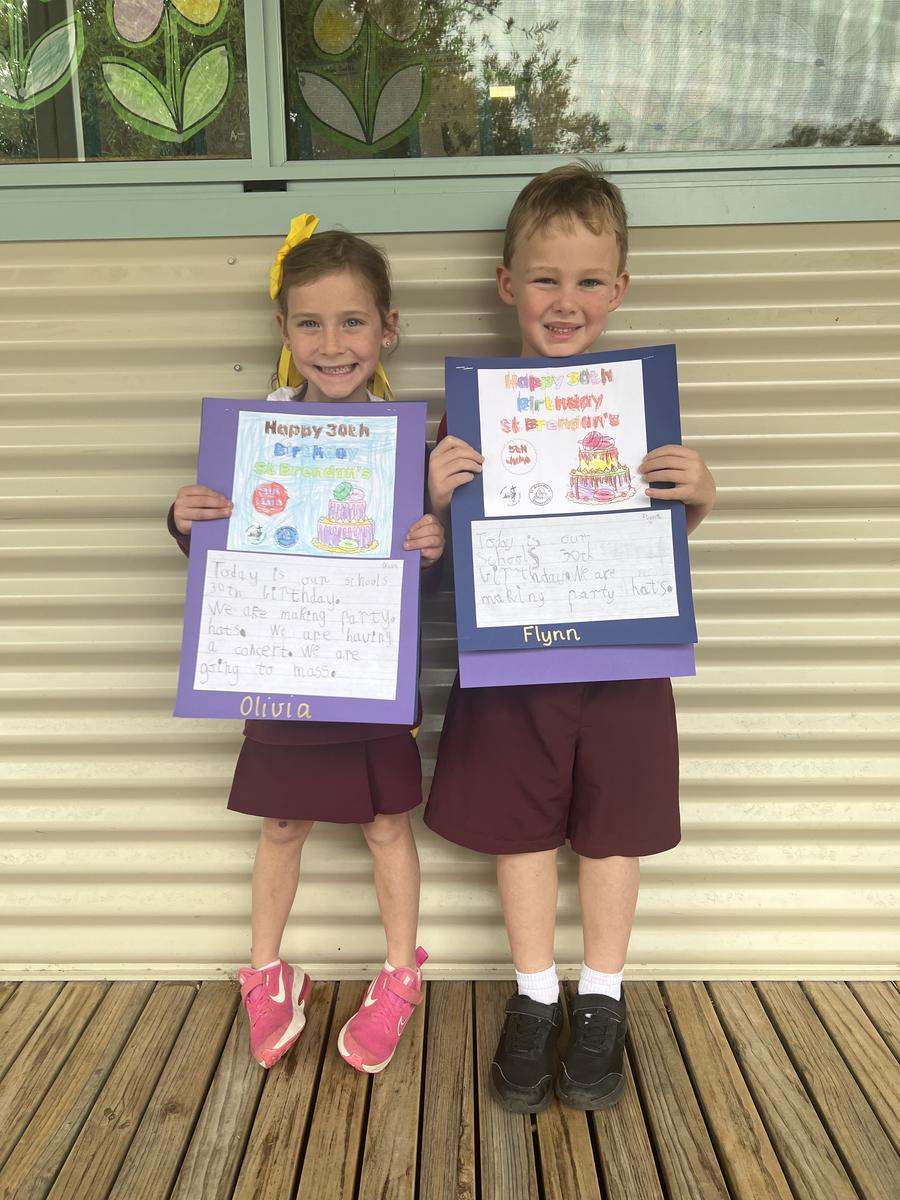 Happy 30th
Birthday
St Brendan's
5th
June
Olivia
Today is our schools
30th birthday.
We are making party.
hats. We are having
a concert. We are
going to mass.
Olivia
Happy 30th
Birthday
St Brendan's
5th
June
Flynn
Today is our
Schools 30th
birthday. We are
making party hats.
Flynn